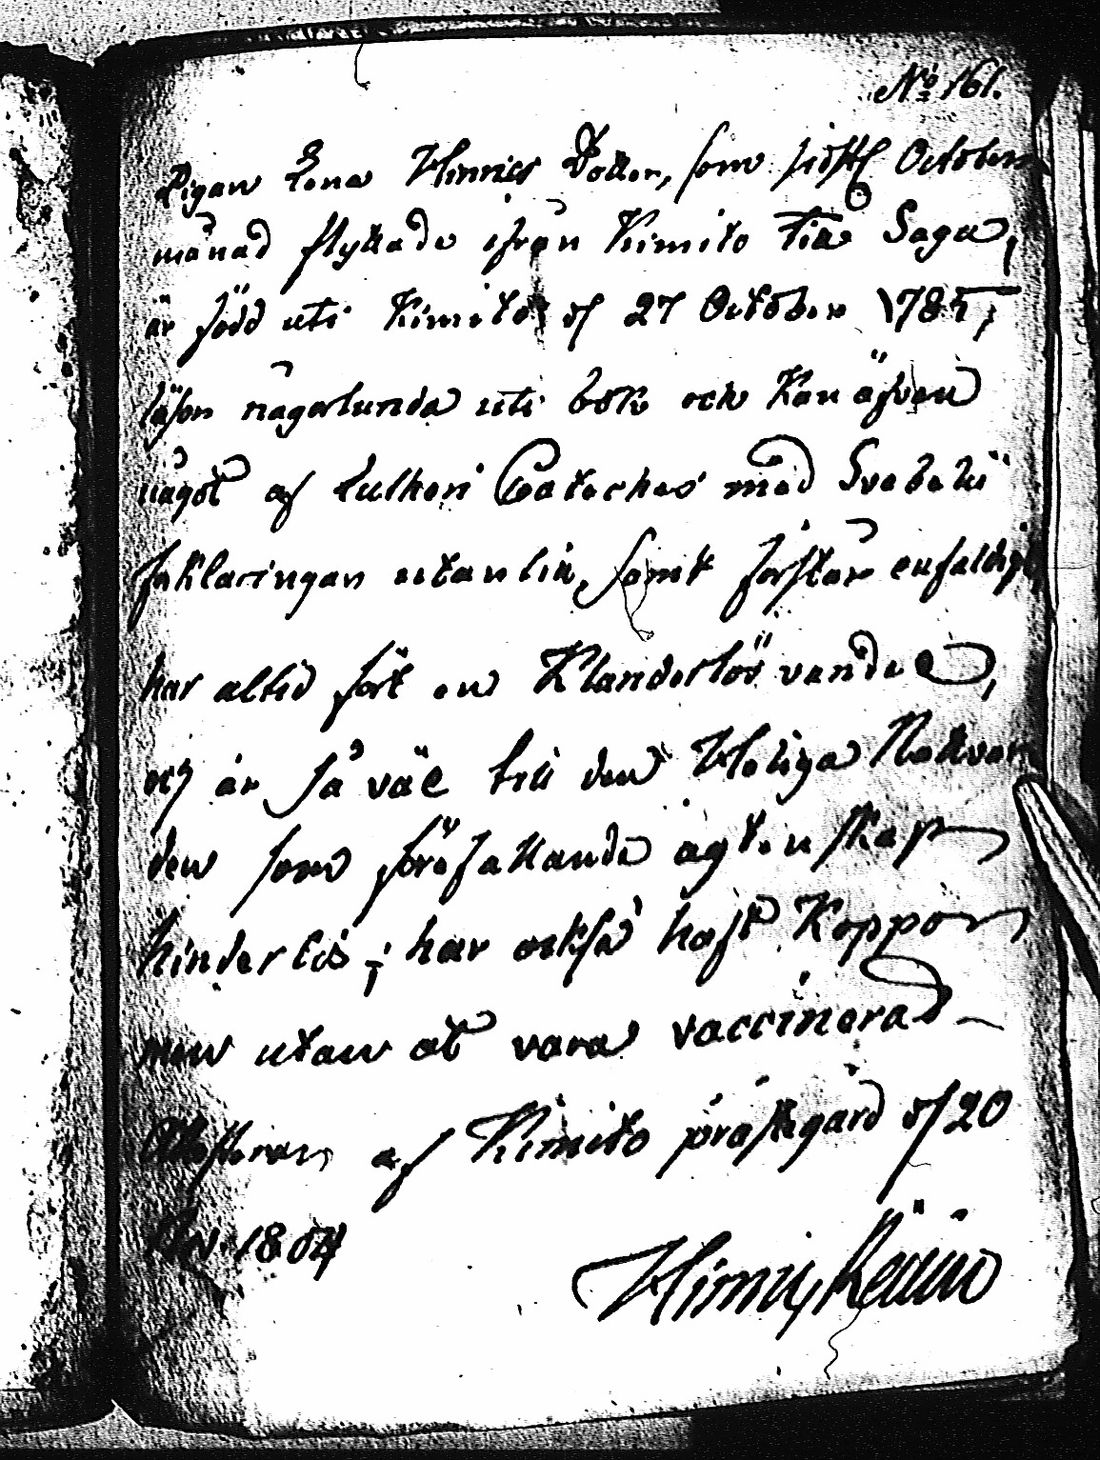 No 161.
Pigan Lena Hinrics Dotter, som sidstl October
månad flyttade ifrån Kimito till Sagu,
är född uti Kimito d 27 October 1785,
läser någorlunda uti bok och kan äfven
något af Lutheri Cateches med Svebelii
förklaringar utantill, samt förstår enfaldigt
har altid fört en Klanderlös vandel,
och är så väl till den Heliga Nattvar
den som förefallande ägtenskap
hinderlös; har också haft Koppor
men utan at vara vaccinerad
Attesteras af Kimito prästegård d 20
1804
Hinric